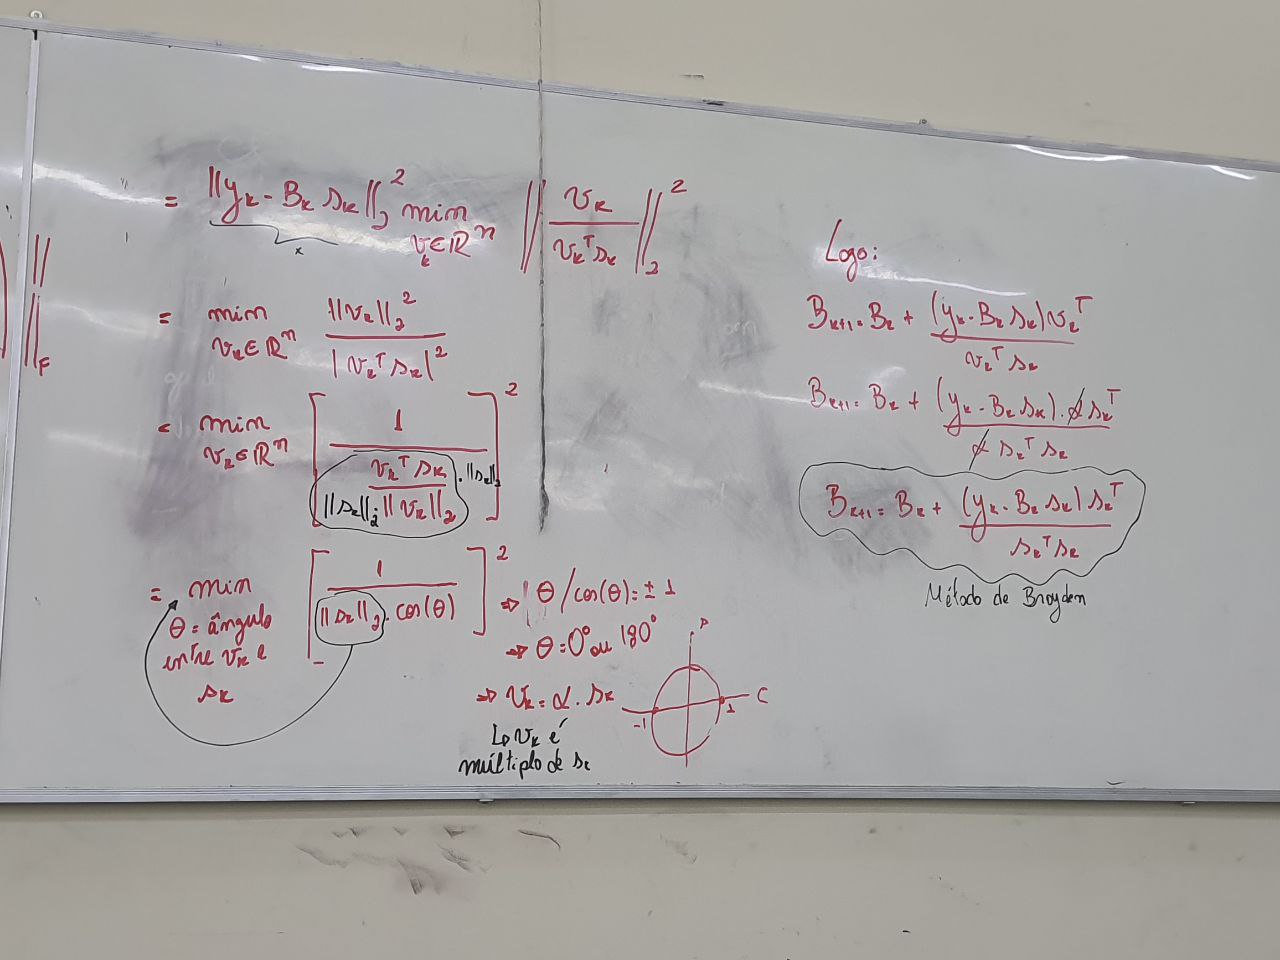 ‖
‖_F
= ‖y_k - B_k s_k‖₂² min_{v_k∈ℝⁿ} ‖ v_k / (v_kᵀ s_k) ‖₂²
x
= min_{v_k∈ℝⁿ} ‖v_k‖₂² / |v_kᵀ s_k|²
= min_{v_k∈ℝⁿ} [ 1 / ( (v_kᵀ s_k) / (‖s_k‖₂ · ‖v_k‖₂) · ‖s_k‖₂ ) ]²
= min [ 1 / ( ‖s_k‖₂ · cos(θ) ) ]² ⇒ θ / cos(θ) = ± 1
θ = ângulo
entre v_k e
s_k
⇒ θ = 0° ou 180°
⇒ v_k = α · s_k
↳ v_k é
múltiplo de s_k
-1 1 C
Logo:
B_{k+1} = B_k + (y_k - B_k s_k) v_kᵀ / (v_kᵀ s_k)
B_{k+1} = B_k + (y_k - B_k s_k) · α s_kᵀ / (α s_kᵀ s_k)
B_{k+1} = B_k + (y_k - B_k s_k) s_kᵀ / (s_kᵀ s_k)
Método de Broyden